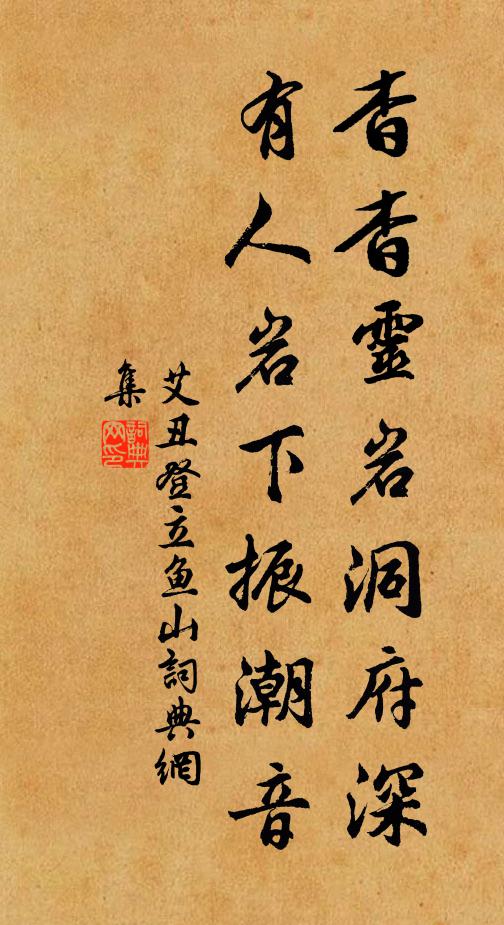 杳杳靈岩洞府深
有人岩下振潮音
艾丑登立魚山詞典網
集
詞典
网印